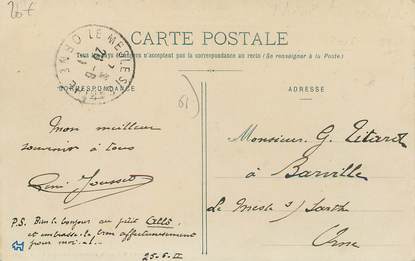 20f
CARTE POSTALE
Tous les pays étrangers n'acceptent pas la correspondance au recto (Se renseigner à la Poste)
LE MESLE S
ORNE
CORRESPONDANCE
ADRESSE
61
Mon meilleur
souvenir à tous
René Jousset
P.S. Bien le bonjour au petit
et embrasse le bien affectueusement
pour moi
25-6-
Monsieur G. Titard
à Barville
Le Mesle s/ Sarthe
Orne